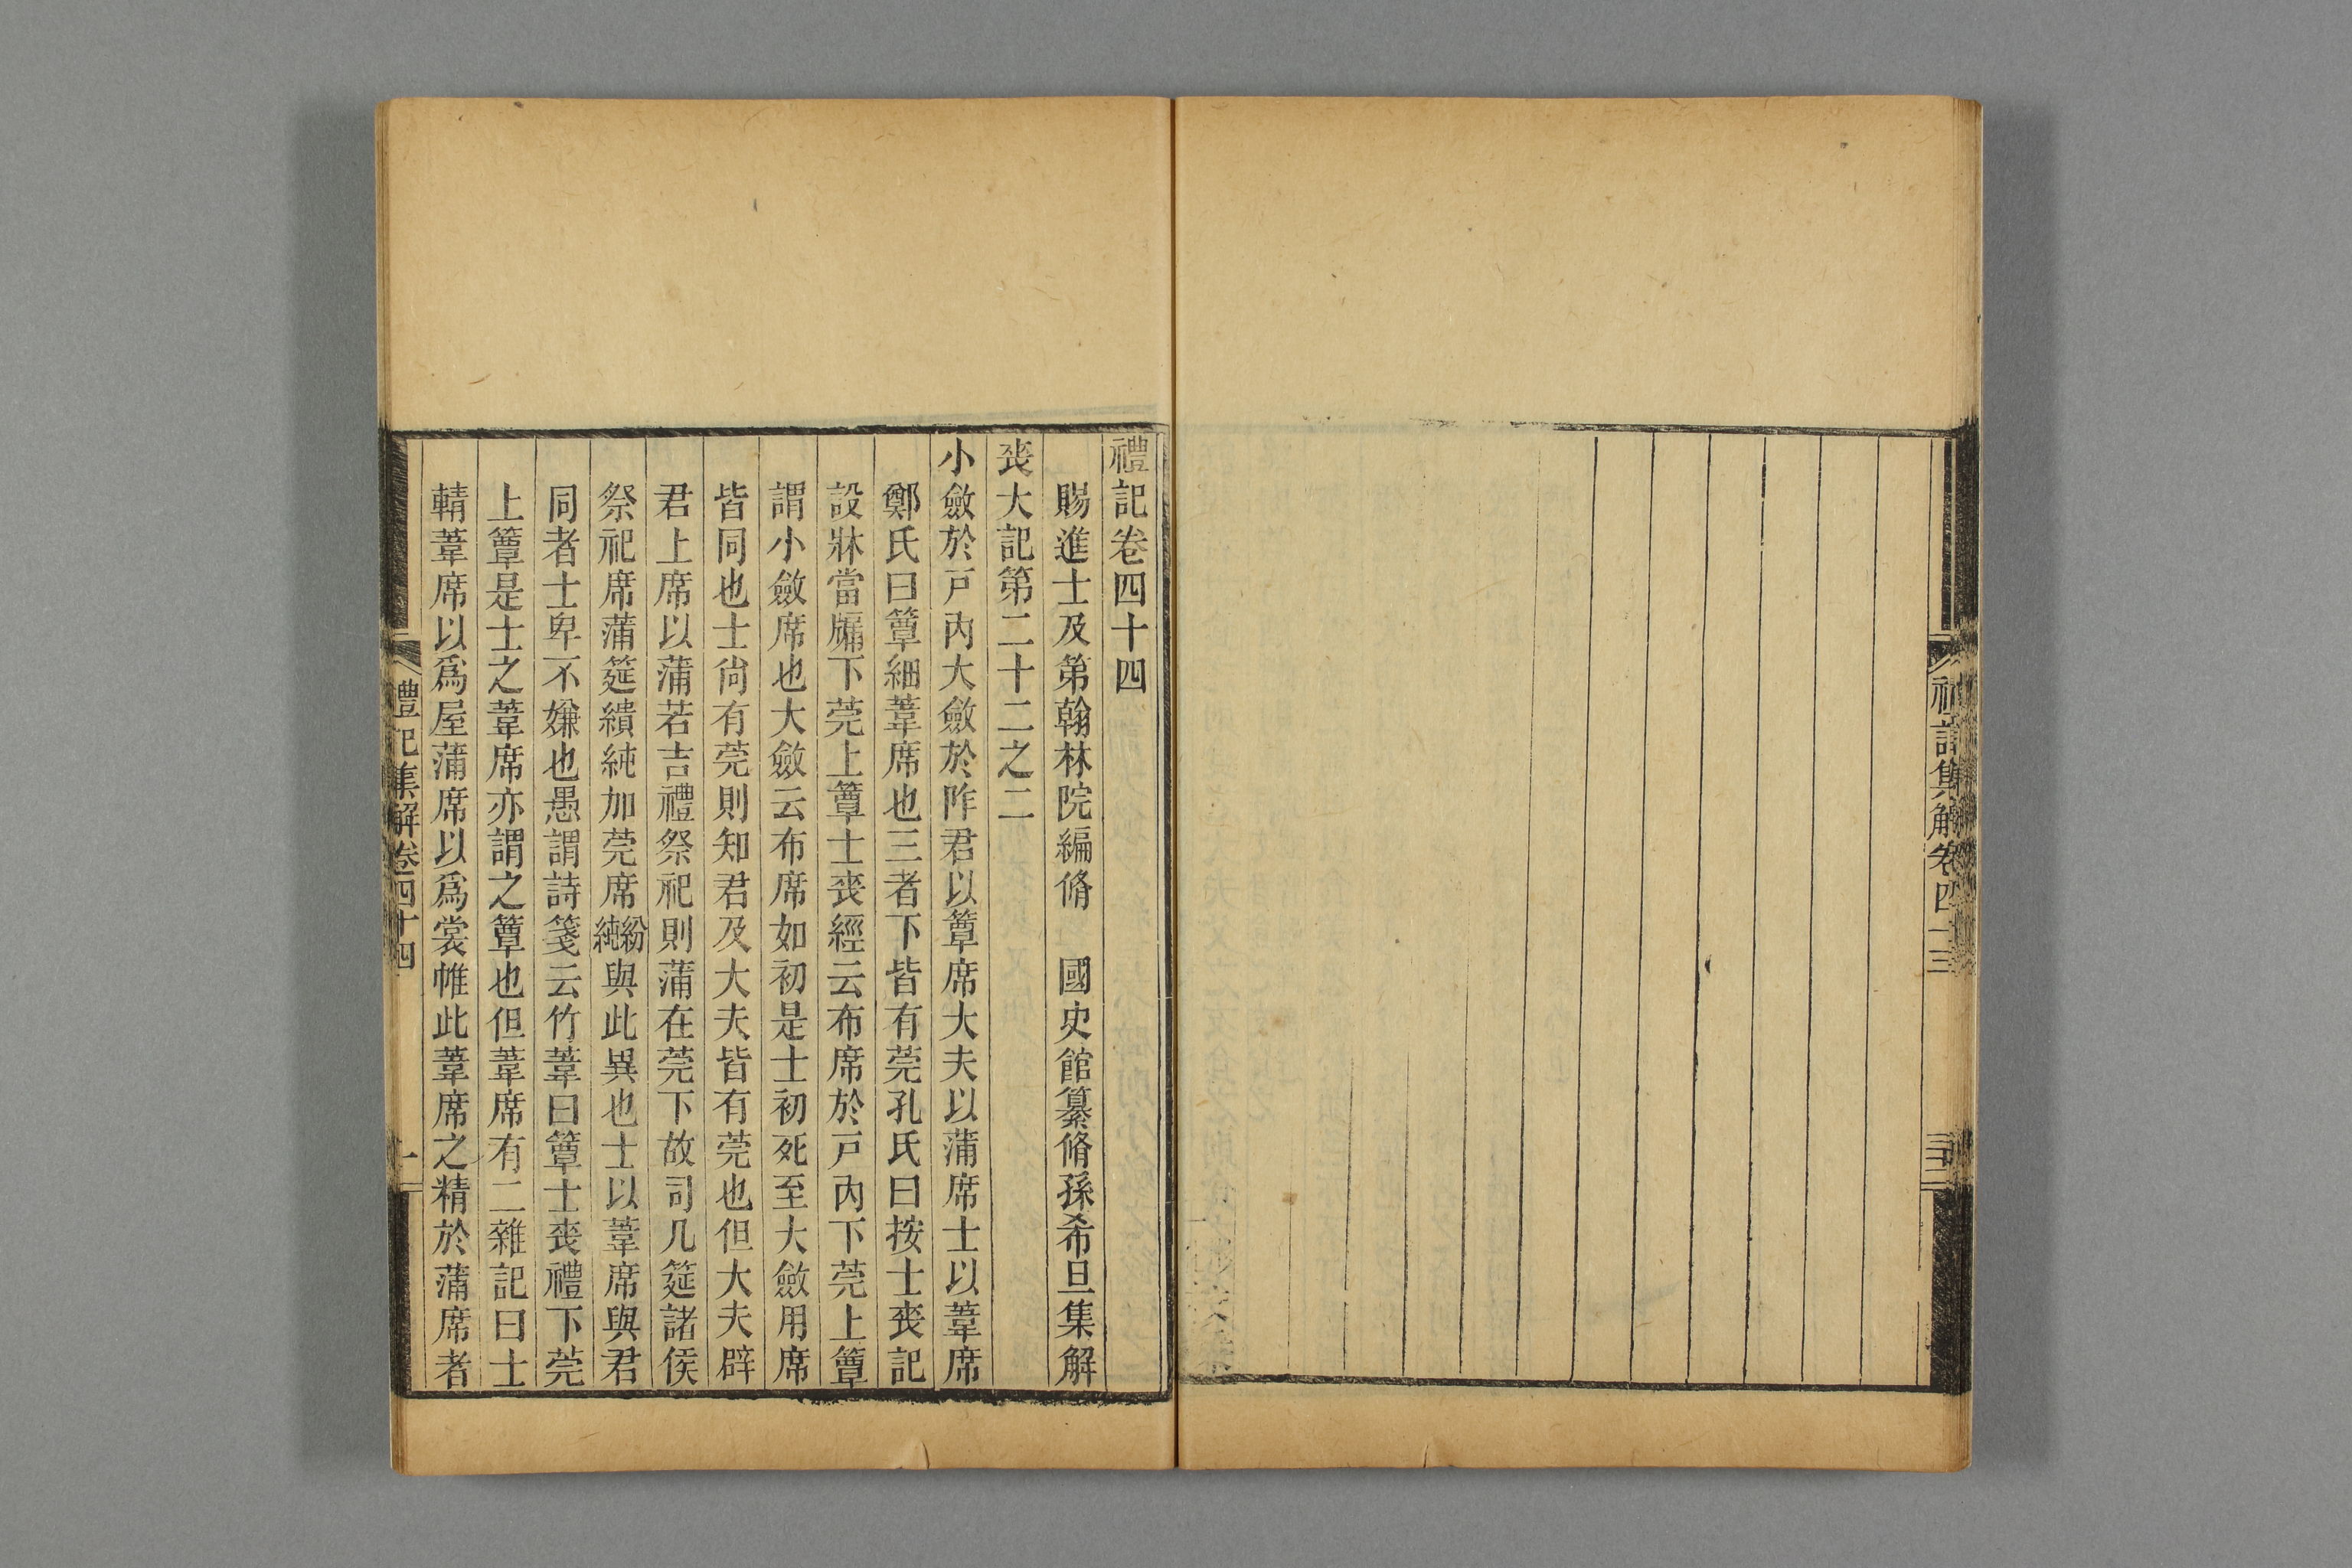 禮記集解卷四十三
禮記卷四十四
賜進士及第翰林院編脩　國史館纂脩孫希旦集解
喪大記第二十二之二
小斂於戸內大斂於阼君以簟席大夫以蒲席士以葦席
鄭氏曰簟細葦席也三者下皆有莞孔氏曰按士喪記
設牀當牖下莞上簟士喪經云布席於戸內下莞上簟
謂小斂席也大斂云布席如初是士初死至大斂用席
皆同也士尙有莞則知君及大夫皆有莞也但大夫辟
君上席以蒲若吉禮祭祀則蒲在莞下故司几筵諸侯
祭祀席蒲筵繢純加莞席紛純與此異也士以葦席與君
同者士卑不嫌也愚謂詩箋云竹葦曰簟士喪禮下莞
上簟是士之葦席亦謂之簟也但葦席有二雜記曰士
輤葦席以爲屋蒲席以爲裳帷此葦席之精於蒲席者
禮記集解卷四十四
一